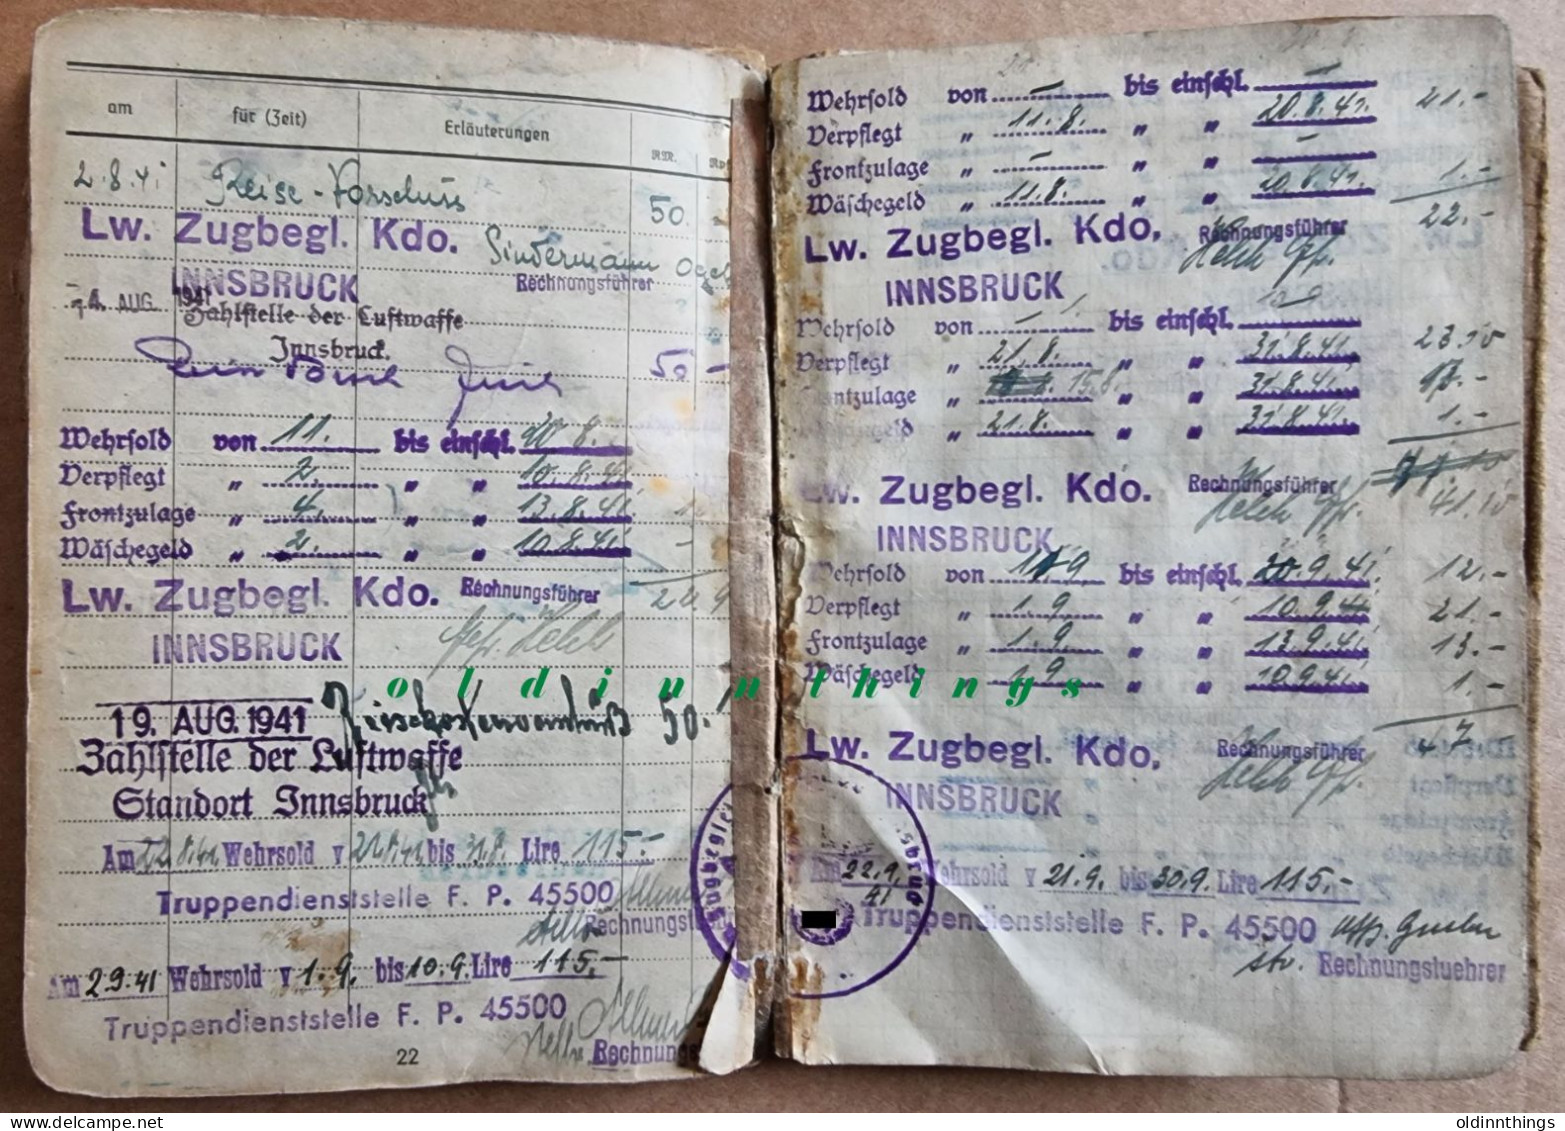 am für (Zeit) Erläuterungen RM.
2.8.41 Reise-Vorschuss 50.
Lw. Zugbegl. Kdo. Sindermann
INNSBRUCK Rechnungsführer
4. AUG. 1941 Zahlstelle der Luftwaffe
Innsbruck.
50 -
Wehrsold von 11. bis einschl. 20 8.
Verpflegt " 2. " " 10.8.41.
Frontzulage " 4. " " 13.8.41.
Wäschegeld " 2. " " 10.8.41.
Lw. Zugbegl. Kdo. Rechnungsführer
INNSBRUCK
19. AUG. 1941 50.
Zahlstelle der Luftwaffe
Standort Innsbruck
Am 22 8.41 Wehrsold v 21.8.41 bis 31.8. Lire 115.-
Truppendienststelle F. P. 45500
Rechnungs
Am 2.9.41 Wehrsold v 1.9. bis 10.9. Lire 115.-
Truppendienststelle F. P. 45500
Rechnungs
22
Wehrsold von - bis einschl. -
Verpflegt " 11.8. " " 20.8.41. 21.-
Frontzulage " - " " -
Wäschegeld " 11.8. " " 20.8.41. 1.-
22.-
Lw. Zugbegl. Kdo. Rechnungsführer
INNSBRUCK
Wehrsold von bis einschl.
Verpflegt " 21.8. " " 31.8.41. 23.10
Frontzulage " 15.8. " " 31.8.41. 17.-
" 21.8. " " 31.8.41. 1.-
Lw. Zugbegl. Kdo. Rechnungsführer
41.10
INNSBRUCK
Wehrsold von 11.9 bis einschl. 20.9.41. 12.-
Verpflegt " 1.9. " " 10.9.41. 21.-
Frontzulage " 1.9. " " 13.9.41. 13.-
Wäschegeld " 1.9. " " 10.9.41. 1.-
47
Lw. Zugbegl. Kdo. Rechnungsführer
INNSBRUCK
Am 22.9.41 Wehrsold v 21.9. bis 30.9. Lire 115.-
Truppendienststelle F. P. 45500
stv. Rechnungsfuehrer
oldinnthings
delcampe.net
oldinnthings